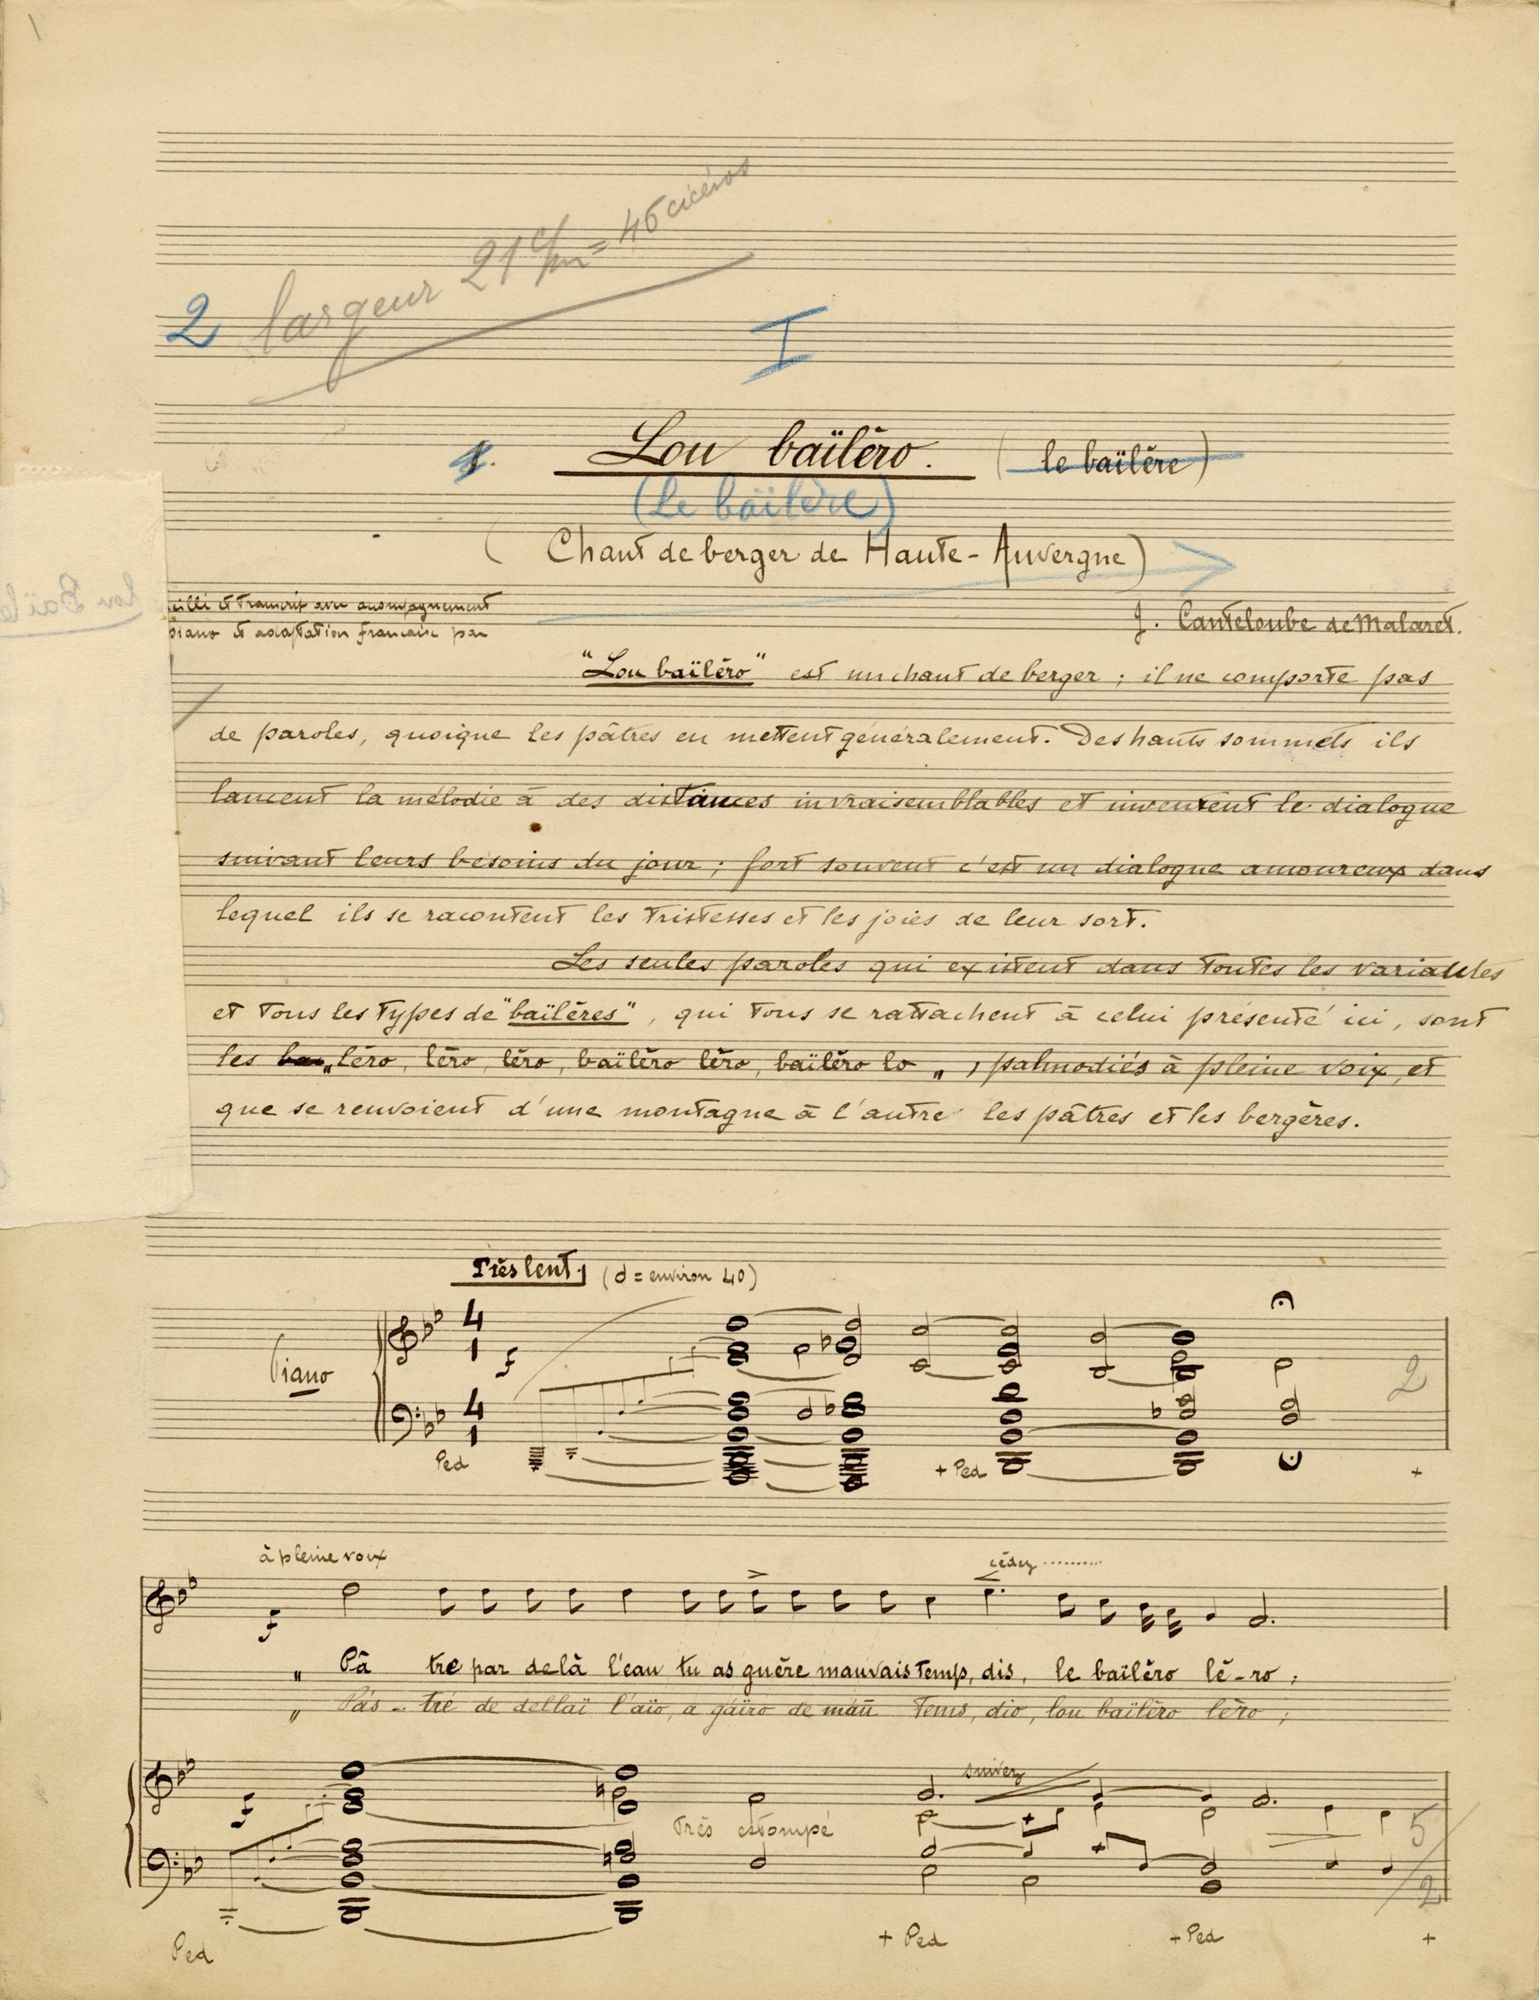 1
largeur 21 c/m = 46 cicéros
2
I
1. Lou baïlèro. (le baïlère)
(Le baïlère)
(Chant de berger de Haute-Auvergne)
Lou Baïlè
eilli et transcrit avec accompagnement
piano et adaptation française par
J. Canteloube de Malaret.
"Lou baïlèro" est un chant de berger ; il ne comporte pas
de paroles, quoique les pâtres en mettent généralement. Des hauts sommets ils
lancent la mélodie à des distances invraisemblables et inventent le dialogue
suivant leurs besoins du jour ; fort souvent c'est un dialogue amoureux dans
lequel ils se racontent les tristesses et les joies de leur sort.
Les seules paroles qui existent dans toutes les variantes
et tous les types de "baïlères", qui tous se rattachent à celui présenté ici, sont
les „lèro, lèro, lèro, baïlèro lèro, baïlèro lo „, psalmodiés à pleine voix, et
que se renvoient d'une montagne à l'autre les pâtres et les bergères.
Très lent. (d = environ 40)
4
1
f
Piano
2
4
1
Ped
+ Ped
+
à pleine voix
cédez..........
f
„ Pâ tre par delà l'eau tu as guère mauvais temps, dis, le baïlèro lè-ro ;
„ Pás-tré de dellaï l'aïo, a gaïro de maü tems, dio, lou baïlèro lèro ;
suivez
f
Très estompé
5/2
Ped
+ Ped
+ Ped
+